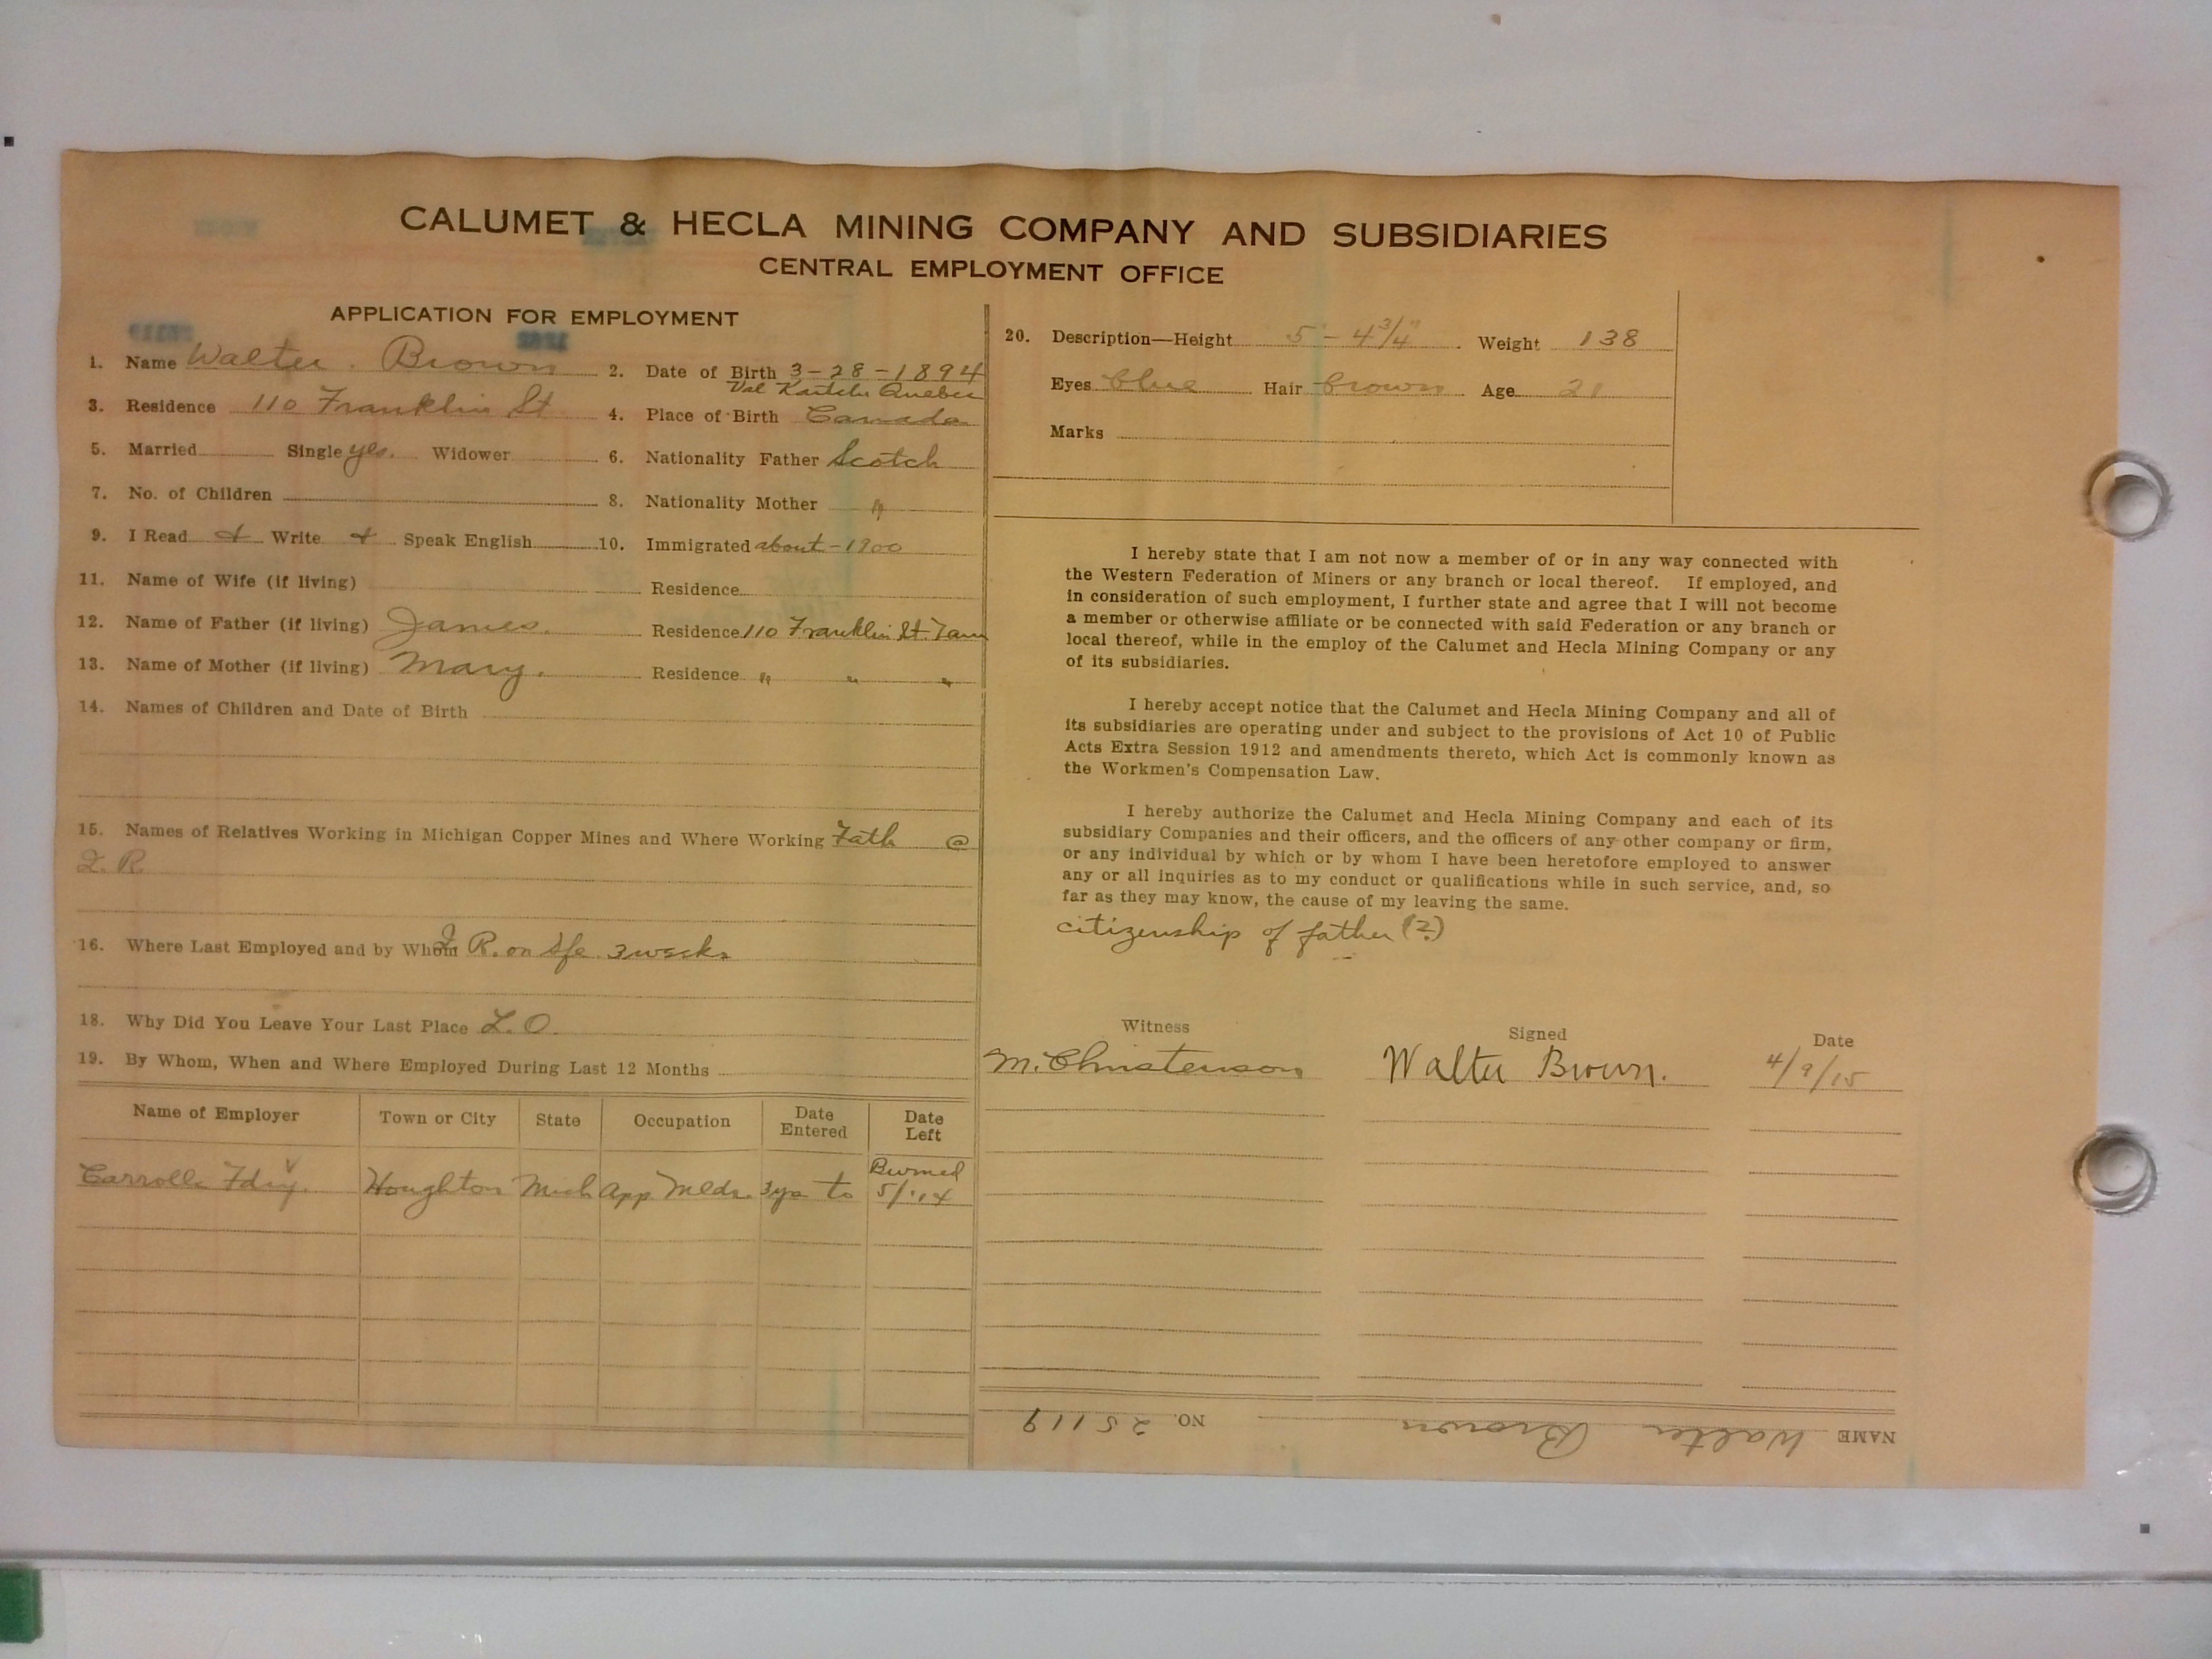 CALUMET & HECLA MINING COMPANY AND SUBSIDIARIES
CENTRAL EMPLOYMENT OFFICE
APPLICATION FOR EMPLOYMENT
1. Name Walter Brown 2. Date of Birth 3-28-1894
Val Quebec
3. Residence 110 Franklin St 4. Place of Birth Canada
5. Married Single yes. Widower 6. Nationality Father Scotch
7. No. of Children 8. Nationality Mother "
9. I Read & Write & Speak English 10. Immigrated about-1900
11. Name of Wife (if living) Residence
12. Name of Father (if living) James. Residence 110 Franklin St. Tam
13. Name of Mother (if living) Mary. Residence " " "
14. Names of Children and Date of Birth
15. Names of Relatives Working in Michigan Copper Mines and Where Working Fath @
Q. R.
16. Where Last Employed and by Whom Q R. on sfe 3 weeks
18. Why Did You Leave Your Last Place L. O.
19. By Whom, When and Where Employed During Last 12 Months
Name of Employer Town or City State Occupation Date Entered Date Left
Carrolls Fdry. Houghton Mich App Mldr. 3 yrs to Burned 5/1/14
20. Description—Height 5'-4 3/4" Weight 138
Eyes blue Hair brown Age 21
Marks
I hereby state that I am not now a member of or in any way connected with
the Western Federation of Miners or any branch or local thereof. If employed, and
in consideration of such employment, I further state and agree that I will not become
a member or otherwise affiliate or be connected with said Federation or any branch or
local thereof, while in the employ of the Calumet and Hecla Mining Company or any
of its subsidiaries.
I hereby accept notice that the Calumet and Hecla Mining Company and all of
its subsidiaries are operating under and subject to the provisions of Act 10 of Public
Acts Extra Session 1912 and amendments thereto, which Act is commonly known as
the Workmen's Compensation Law.
I hereby authorize the Calumet and Hecla Mining Company and each of its
subsidiary Companies and their officers, and the officers of any other company or firm,
or any individual by which or by whom I have been heretofore employed to answer
any or all inquiries as to my conduct or qualifications while in such service, and, so
far as they may know, the cause of my leaving the same.
citizenship of father (?)
Witness Signed Date
M. Christenson Walter Brown. 4/9/15
NAME Walter Brown NO. 25119